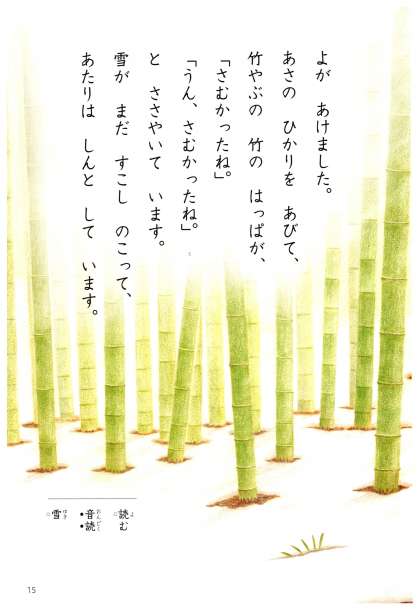 よが　あけました。
あさの　ひかりを　あびて、
竹やぶの　竹の　はっぱが、
「さむかったね。」
「うん、さむかったね。」
と　ささやいて　います。
雪が　まだ　すこし　のこって、
あたりは　しんと　して　います。
読む
よ
•音•読
おんどく
雪
ゆき
15